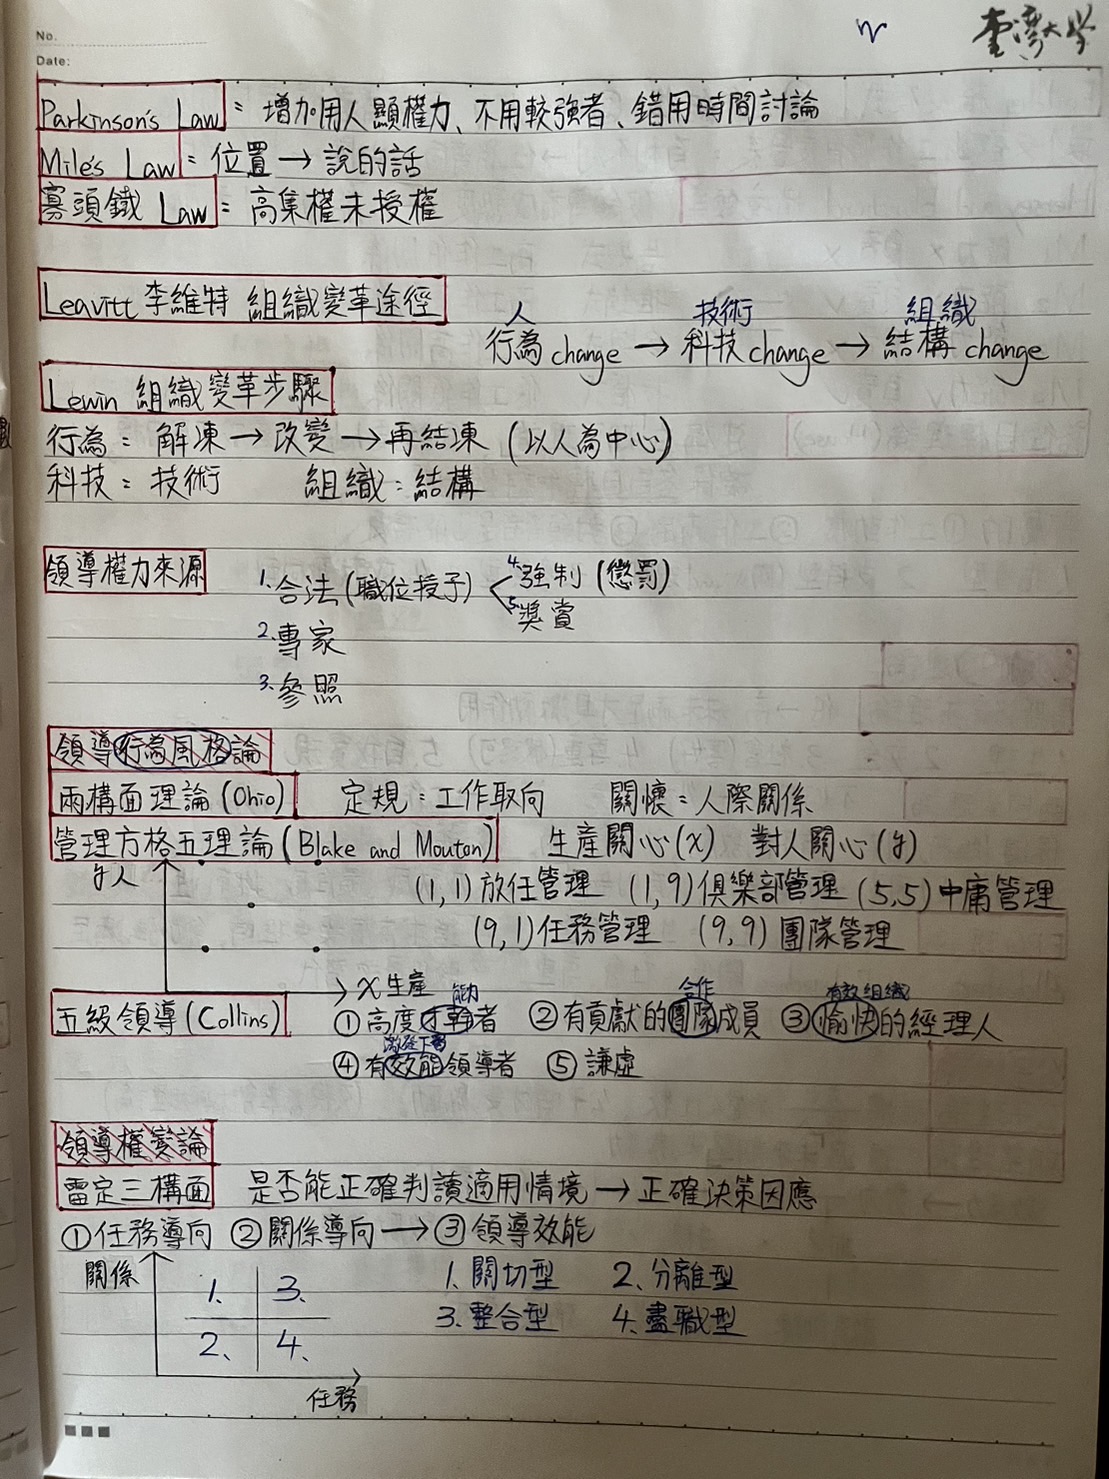 No.
Date:
臺灣大學
Parkinson's Law = 增加用人顯權力、不用較強者、錯用時間討論
Mile's Law = 位置 → 說的話
寡頭鐵 Law = 高集權未授權
Leavitt 李維特 組織變革途徑
人 技術 組織
行為 change → 科技 change → 結構 change
Lewin 組織變革步驟
行為 = 解凍 → 改變 → 再結凍 (以人為中心)
科技 = 技術 組織 = 結構
領導權力來源
1. 合法 (職位授予) < 4. 強制 (懲罰)
5. 獎賞
2. 專家
3. 參照
領導行為風格論
兩構面理論 (Ohio) 定規 = 工作取向 關懷 = 人際關係
管理方格五理論 (Blake and Mouton) 生產關心 (x) 對人關心 (y)
y人
(1,1) 放任管理 (1,9) 俱樂部管理 (5,5) 中庸管理
(9,1) 任務管理 (9,9) 團隊管理
x 生產
能力 合作 有效組織
五級領導 (Collins) ① 高度才幹者 ② 有貢獻的團隊成員 ③ 愉快的經理人
激發下屬
④ 有效能領導者 ⑤ 謙虛
領導權變論
雷定三構面 是否能正確判讀適用情境 → 正確決策因應
① 任務導向 ② 關係導向 → ③ 領導效能
關係
1、 3、
2、 4、
任務
1、關切型 2、分離型
3、整合型 4、盡職型